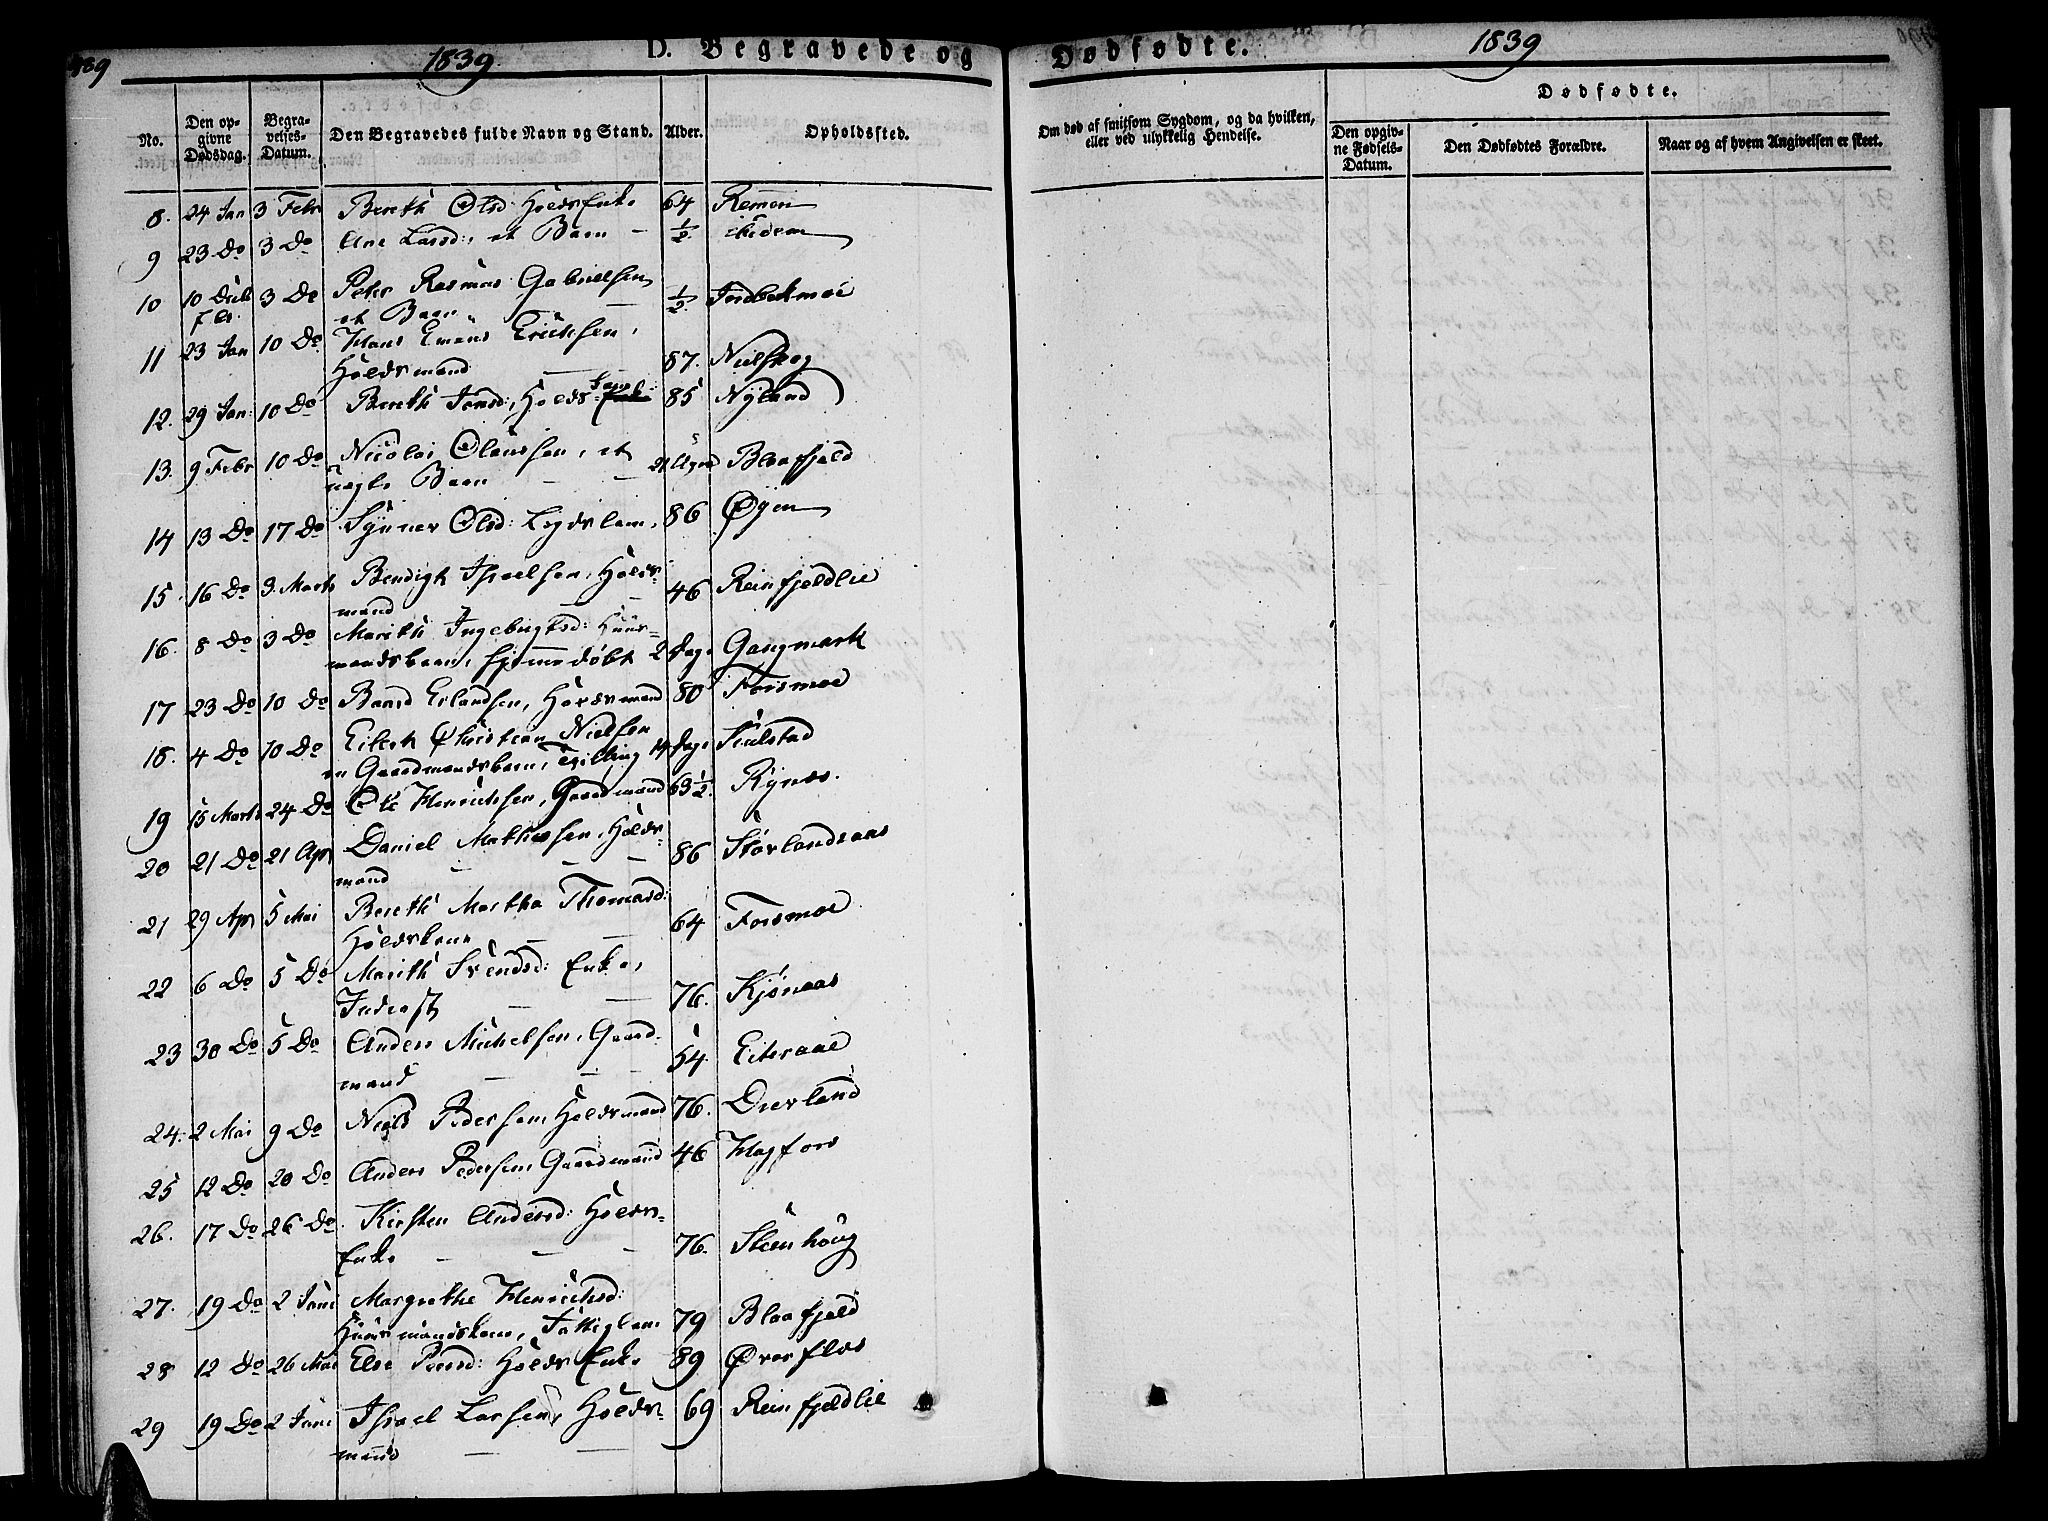 489 1839 D. Begravede og Dødfødte. 1839
No. Den opgivne Dødsdag. Begravelses-Datum. Den Begravedes fulde Navn og Stand. Alder. Opholdssted. Om død af smitsom Sygdom, og da hvilken, eller ved ulykkelig Hendelse. Dødfødte.
Den opgivne Fødsels-Datum. Den Dødfødtes Forældre. Naar og af hvem Angivelsen er skeet.
8. 24 Jan 3 Febr Bereth Olsd: Holds Enke 64 Remen
9 23 Do 3 Do Ane Larsd:, et Barn - 1/2 ibidem
10 10 3 Do Peter Rasmus Gabrielsen
et Barn 1/2
11 23 Jan 10 Do Hans Erichsen,
Holdsmand 87.
12. 29 Jan: 10 Do Bereth Jonsd:, Holds 85 Nyland
13. 9 Febr 10 Do Nicolai Olaussen, et
Barn - - 21 Blaafjeld
14 13 Do 17 Do Synner Olsd: Legdslem, 86 Øyen
15 16 Do 3 Marts Bendigt Israelsen, Holds-
mand 46 Reinfjeldlie
16. 8 Do 3 Do Marith Ingebrigtsd: Huus-
mandsbarn, hjemmedøbt 2 Dage Gangmark
17 23 Do 10 Do Baard Erlandsen, Holdsmand 80 Forsmoe
18. 4 Do 10 Do Christian Nielsen
en Gaardmandsbarn, Tvilling 14 Dage
19 15 Marts 24 Do Ole Henrichsen, Gaardmand 63 1/2. Rynes.
20 21 Do 21 Apr Daniel Mathiesen, Holds-
mand - - - 86 Storlandsaas
21 29 Apr 5 Mai Bereth Martha Thomasd:
Holdskone 64 Forsmoe
22 6 Do 5 Do Marith Svendsd: Enke,
Inderst - - 76. Kjønaas
23 30 Do 5 Do Anders Michelsen, Gaard-
mand - - - 54. Eiteraae
24. 2 Mai 9 Do Niels Pedersen, Holdsmand 76. Drevland
25 12 Do 20 Do Anders Pedersen, Gaardmand 46 Hagfors
26. 17 Do 26 Do Kirsten Andersd: Holds-
Enke - - - 76. Steenhoug
27. 19 Do 2 Juni Margrethe Henrichsd:
Huusmandskone, Fattiglem 79 Blaafjeld
28 12 Do 26 Mai Else Peersd: Holds Enke 89 Øverflos
29 19 Do 2 Juni Israel Larsen, Holds-
mand - - 69 Reinfjeldlie